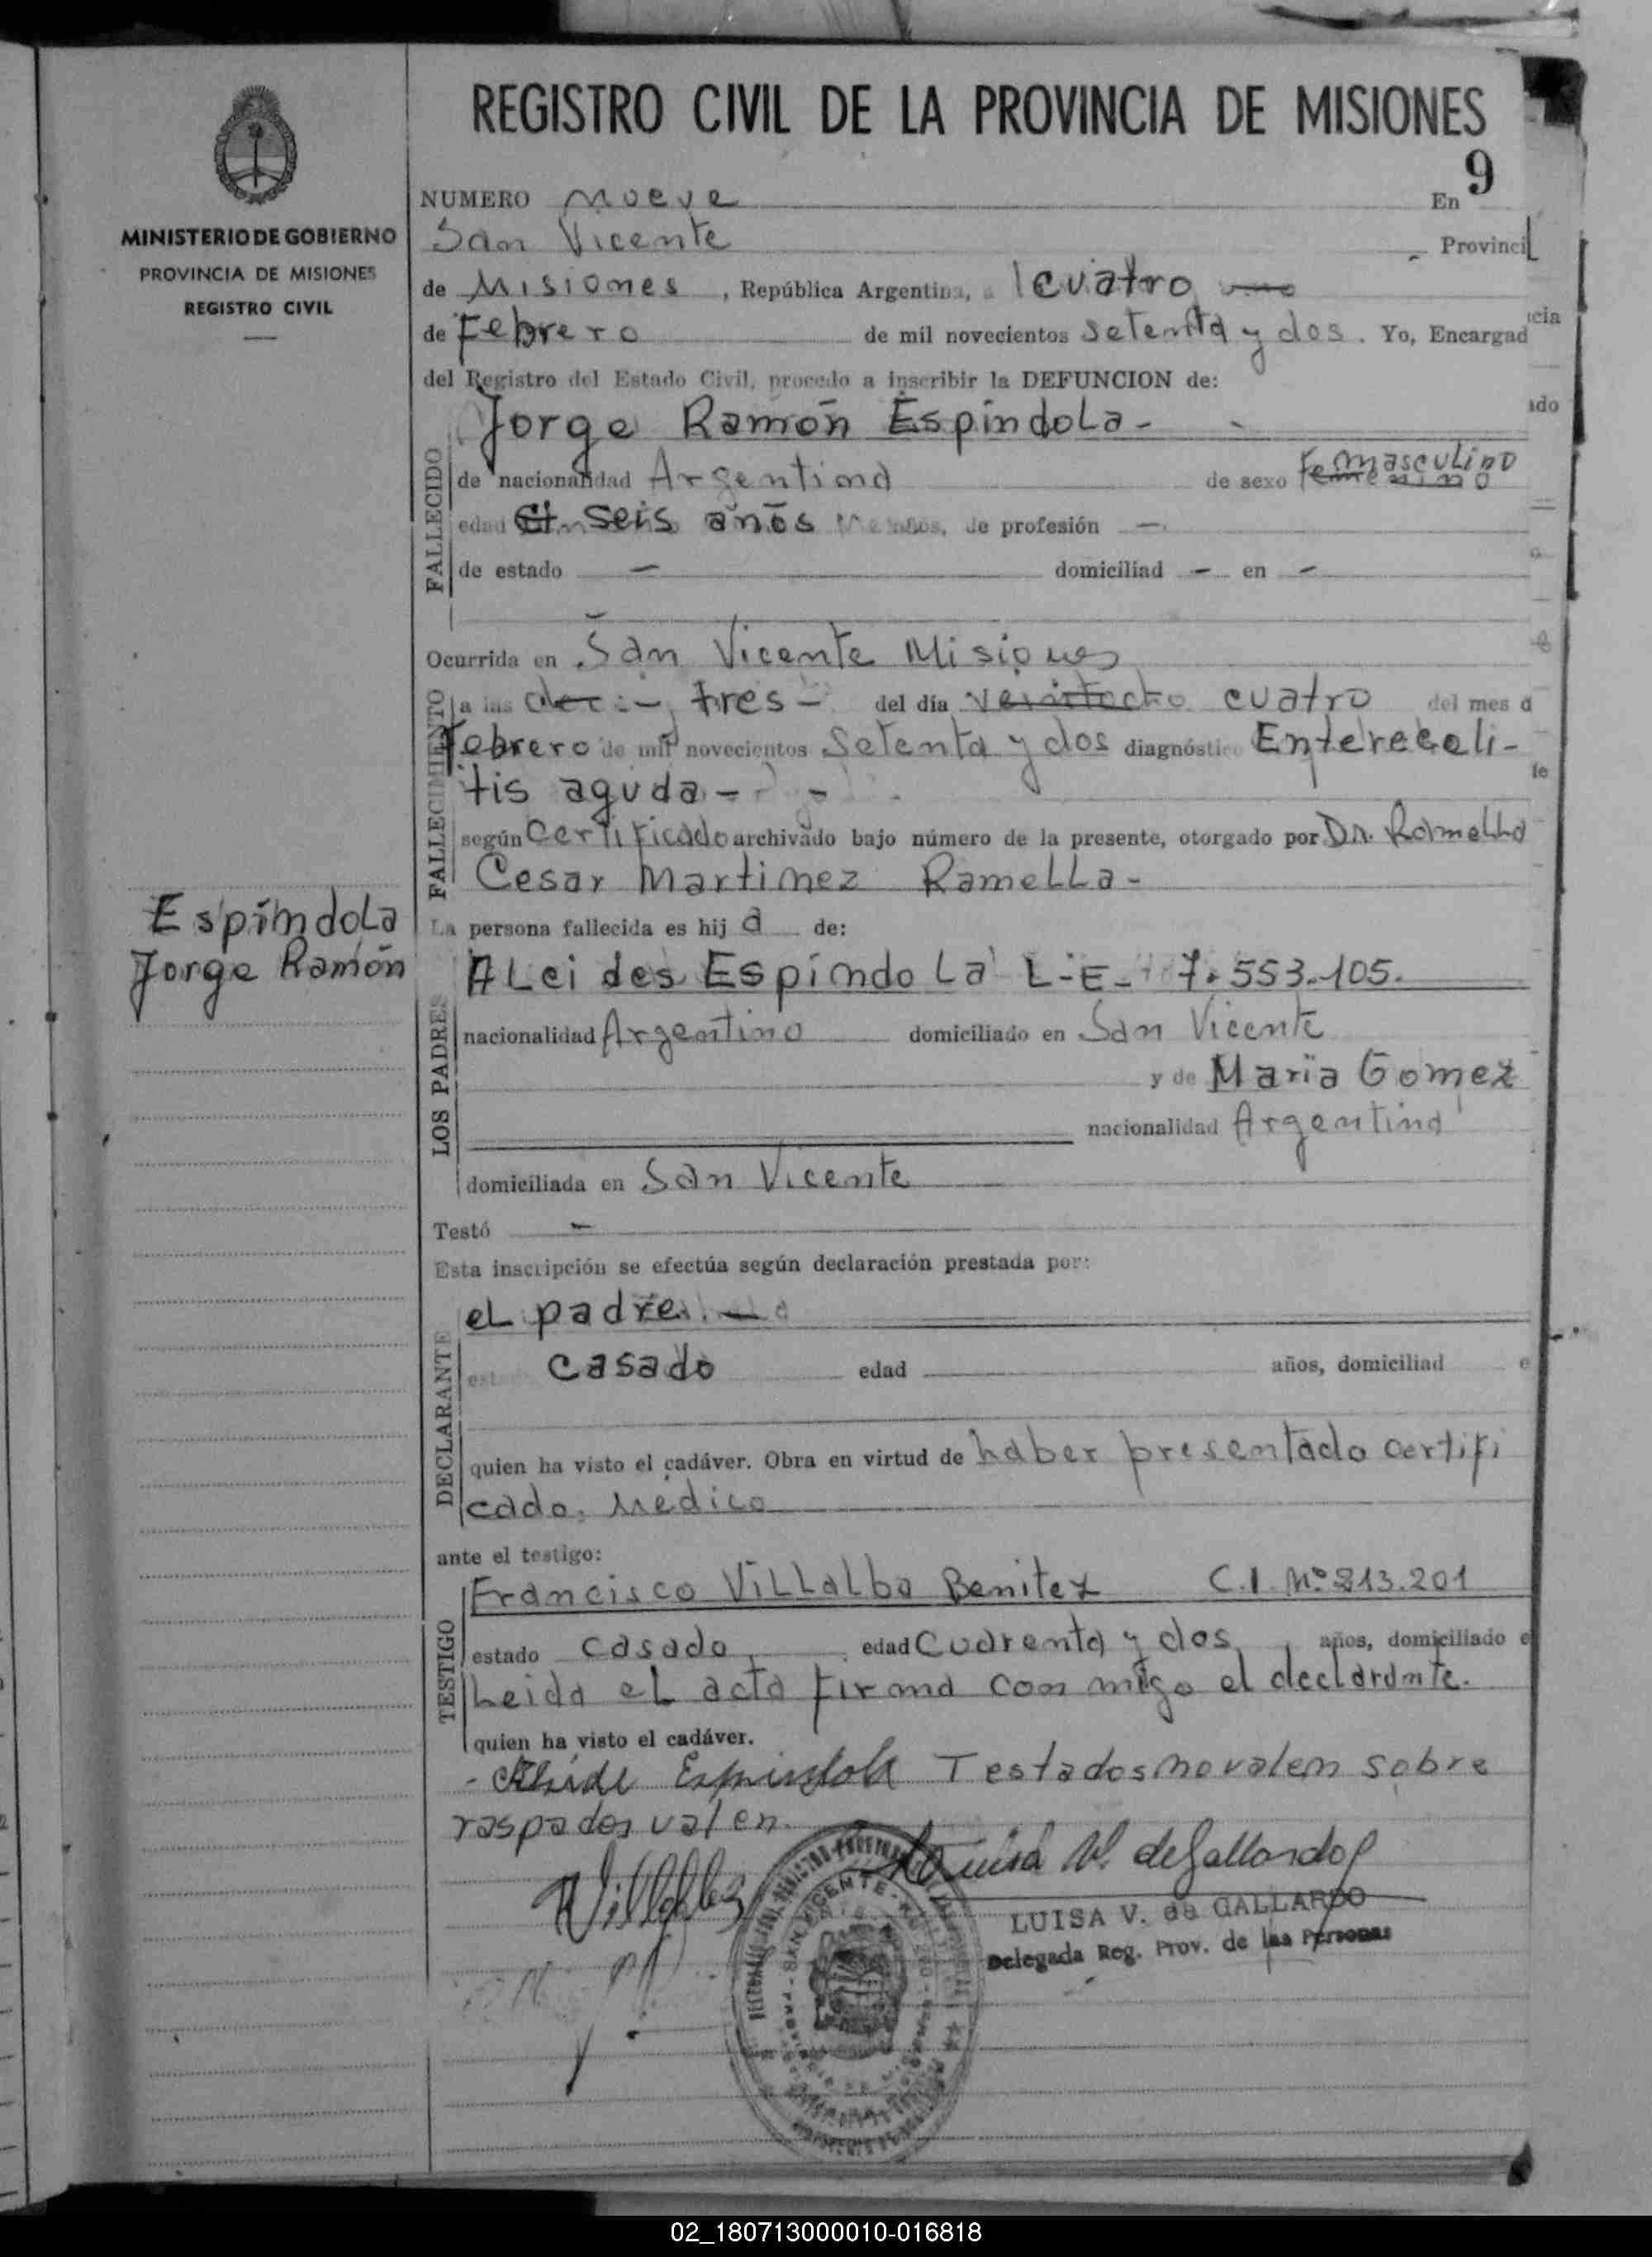 REGISTRO CIVIL DE LA PROVINCIA DE MISIONES
9
MINISTERIO DE GOBIERNO
PROVINCIA DE MISIONES
REGISTRO CIVIL
NUMERO nueve En
San Vicente Provinci
de Misiones, República Argentina, a cuatro
de Febrero de mil novecientos setenta y dos. Yo, Encargad
del Registro del Estado Civil, procedo a inscribir la DEFUNCION de:
Jorge Ramón Espíndola-
FALLECIDO
de nacionalidad Argentina de sexo Femenino masculino
edad seis años años, de profesión —
de estado — domiciliad — en —
Ocurrida en San Vicente Misiones
FALLECIMIENTO
a las tres- del día veintiocho cuatro del mes d
Febrero de mil novecientos setenta y dos diagnóstico Enterecoli-
tis aguda-
según Certificado archivado bajo número de la presente, otorgado por Dr. Ramella
Cesar Martinez Ramella-
Espíndola
Jorge Ramón
La persona fallecida es hij a de:
LOS PADRES
ALcides Espíndola L-E- 7.553.105.
nacionalidad Argentino domiciliado en San Vicente
y de Maria Gomez
nacionalidad Argentina
domiciliada en San Vicente
Testó —
Esta inscripción se efectúa según declaración prestada por:
DECLARANTE
eL padre. —
casado edad años, domiciliad e
quien ha visto el cadáver. Obra en virtud de haber presentado certifi
cado. Medico
ante el testigo:
TESTIGO
Francisco ViLLalba Benitez C.I. Nº 213.201
estado casado edad cuarenta y dos, años, domiciliado e
Leida eL acta firma con migo el declarante.
quien ha visto el cadáver.
Alcide Espindola Testados no valen sobre
raspados valen.
Villalba
Luisa V. de Gallardo
LUISA V. de GALLARDO
Delegada Reg. Prov. de las Personas
SAN VICENTE
02_180713000010-016818